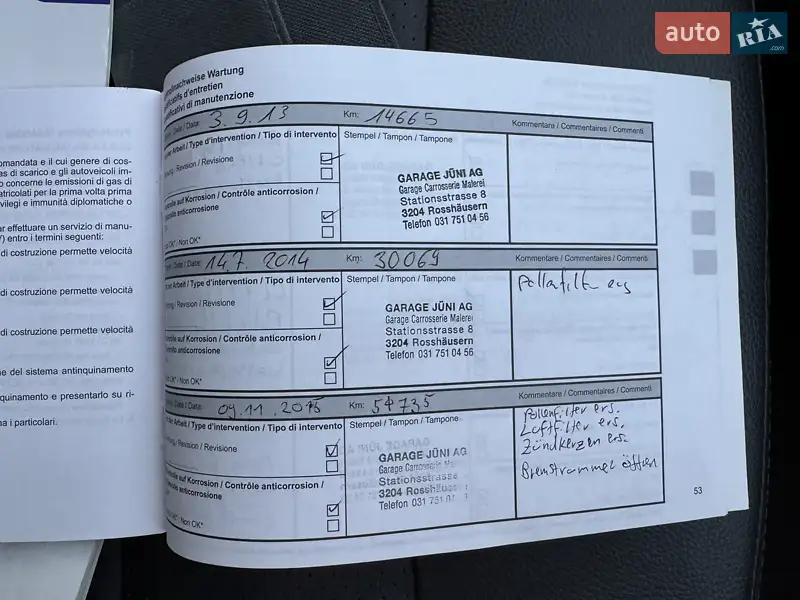 auto RIA.com
omandata e il cui genere di cos-
as di scarico e gli autoveicoli im-
o concerne le emissioni di gas di
atricolati per la prima volta prima
vilegi e immunità diplomatiche o
ar effettuare un servizio di manu-
) entro i termini seguenti:
di costruzione permette velocità
di costruzione permette velocità
di costruzione permette velocità
ne del sistema antinquinamento
quinamento e presentarlo su ri-
na i particolari.
nachweise Wartung
ificatifs d'entretien
ificativi di manutenzione
Date / Data: 3.9.13 Km: 14665 Kommentare / Commentaires / Commenti
er Arbeit / Type d'intervention / Tipo di intervento Stempel / Tampon / Tampone
ung / Revision / Revisione
olle auf Korrosion / Contrôle anticorrosion /
osito anticorrosione
OK* / Non OK*
GARAGE JÜNI AG
Garage Carrosserie Malerei
Stationsstrasse 8
3204 Rosshäusern
Telefon 031 751 04 56
Date / Data: 14.7. 2014 Km: 30069 Kommentare / Commentaires / Commenti
er Arbeit / Type d'intervention / Tipo di intervento Stempel / Tampon / Tampone
ung / Revision / Revisione
olle auf Korrosion / Contrôle anticorrosion /
osito anticorrosione
OK* / Non OK*
GARAGE JÜNI AG
Garage Carrosserie Malerei
Stationsstrasse 8
3204 Rosshäusern
Telefon 031 751 04 56
Pollenfilter ers
Date / Data: 09.11.2015 Km: 54735 Kommentare / Commentaires / Commenti
er Arbeit / Type d'intervention / Tipo di intervento Stempel / Tampon / Tampone
ung / Revision / Revisione
olle auf Korrosion / Contrôle anticorrosion /
osito anticorrosione
OK* / Non OK*
GARAGE JÜNI AG
Garage Carrosserie
Stationsstrasse
3204 Rosshäus
Telefon 031 751
Pollenfilter ers.
Luftfilter ers.
Zündkerzen ers.
Bremstrommel öffnen
53